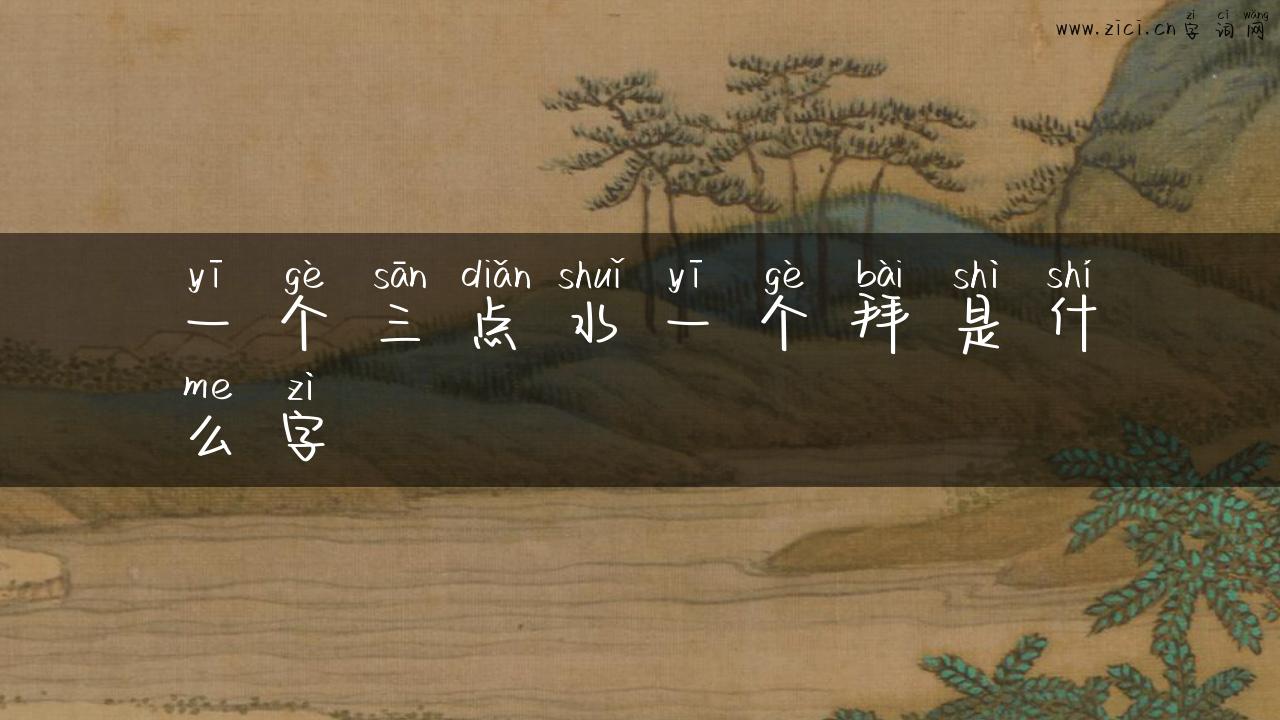 zì cí wǎng
www.zici.cn 字词网
yī gè sān diǎn shuǐ yī gè bài shì shí
一个三点水一个拜是什
me zì
么字